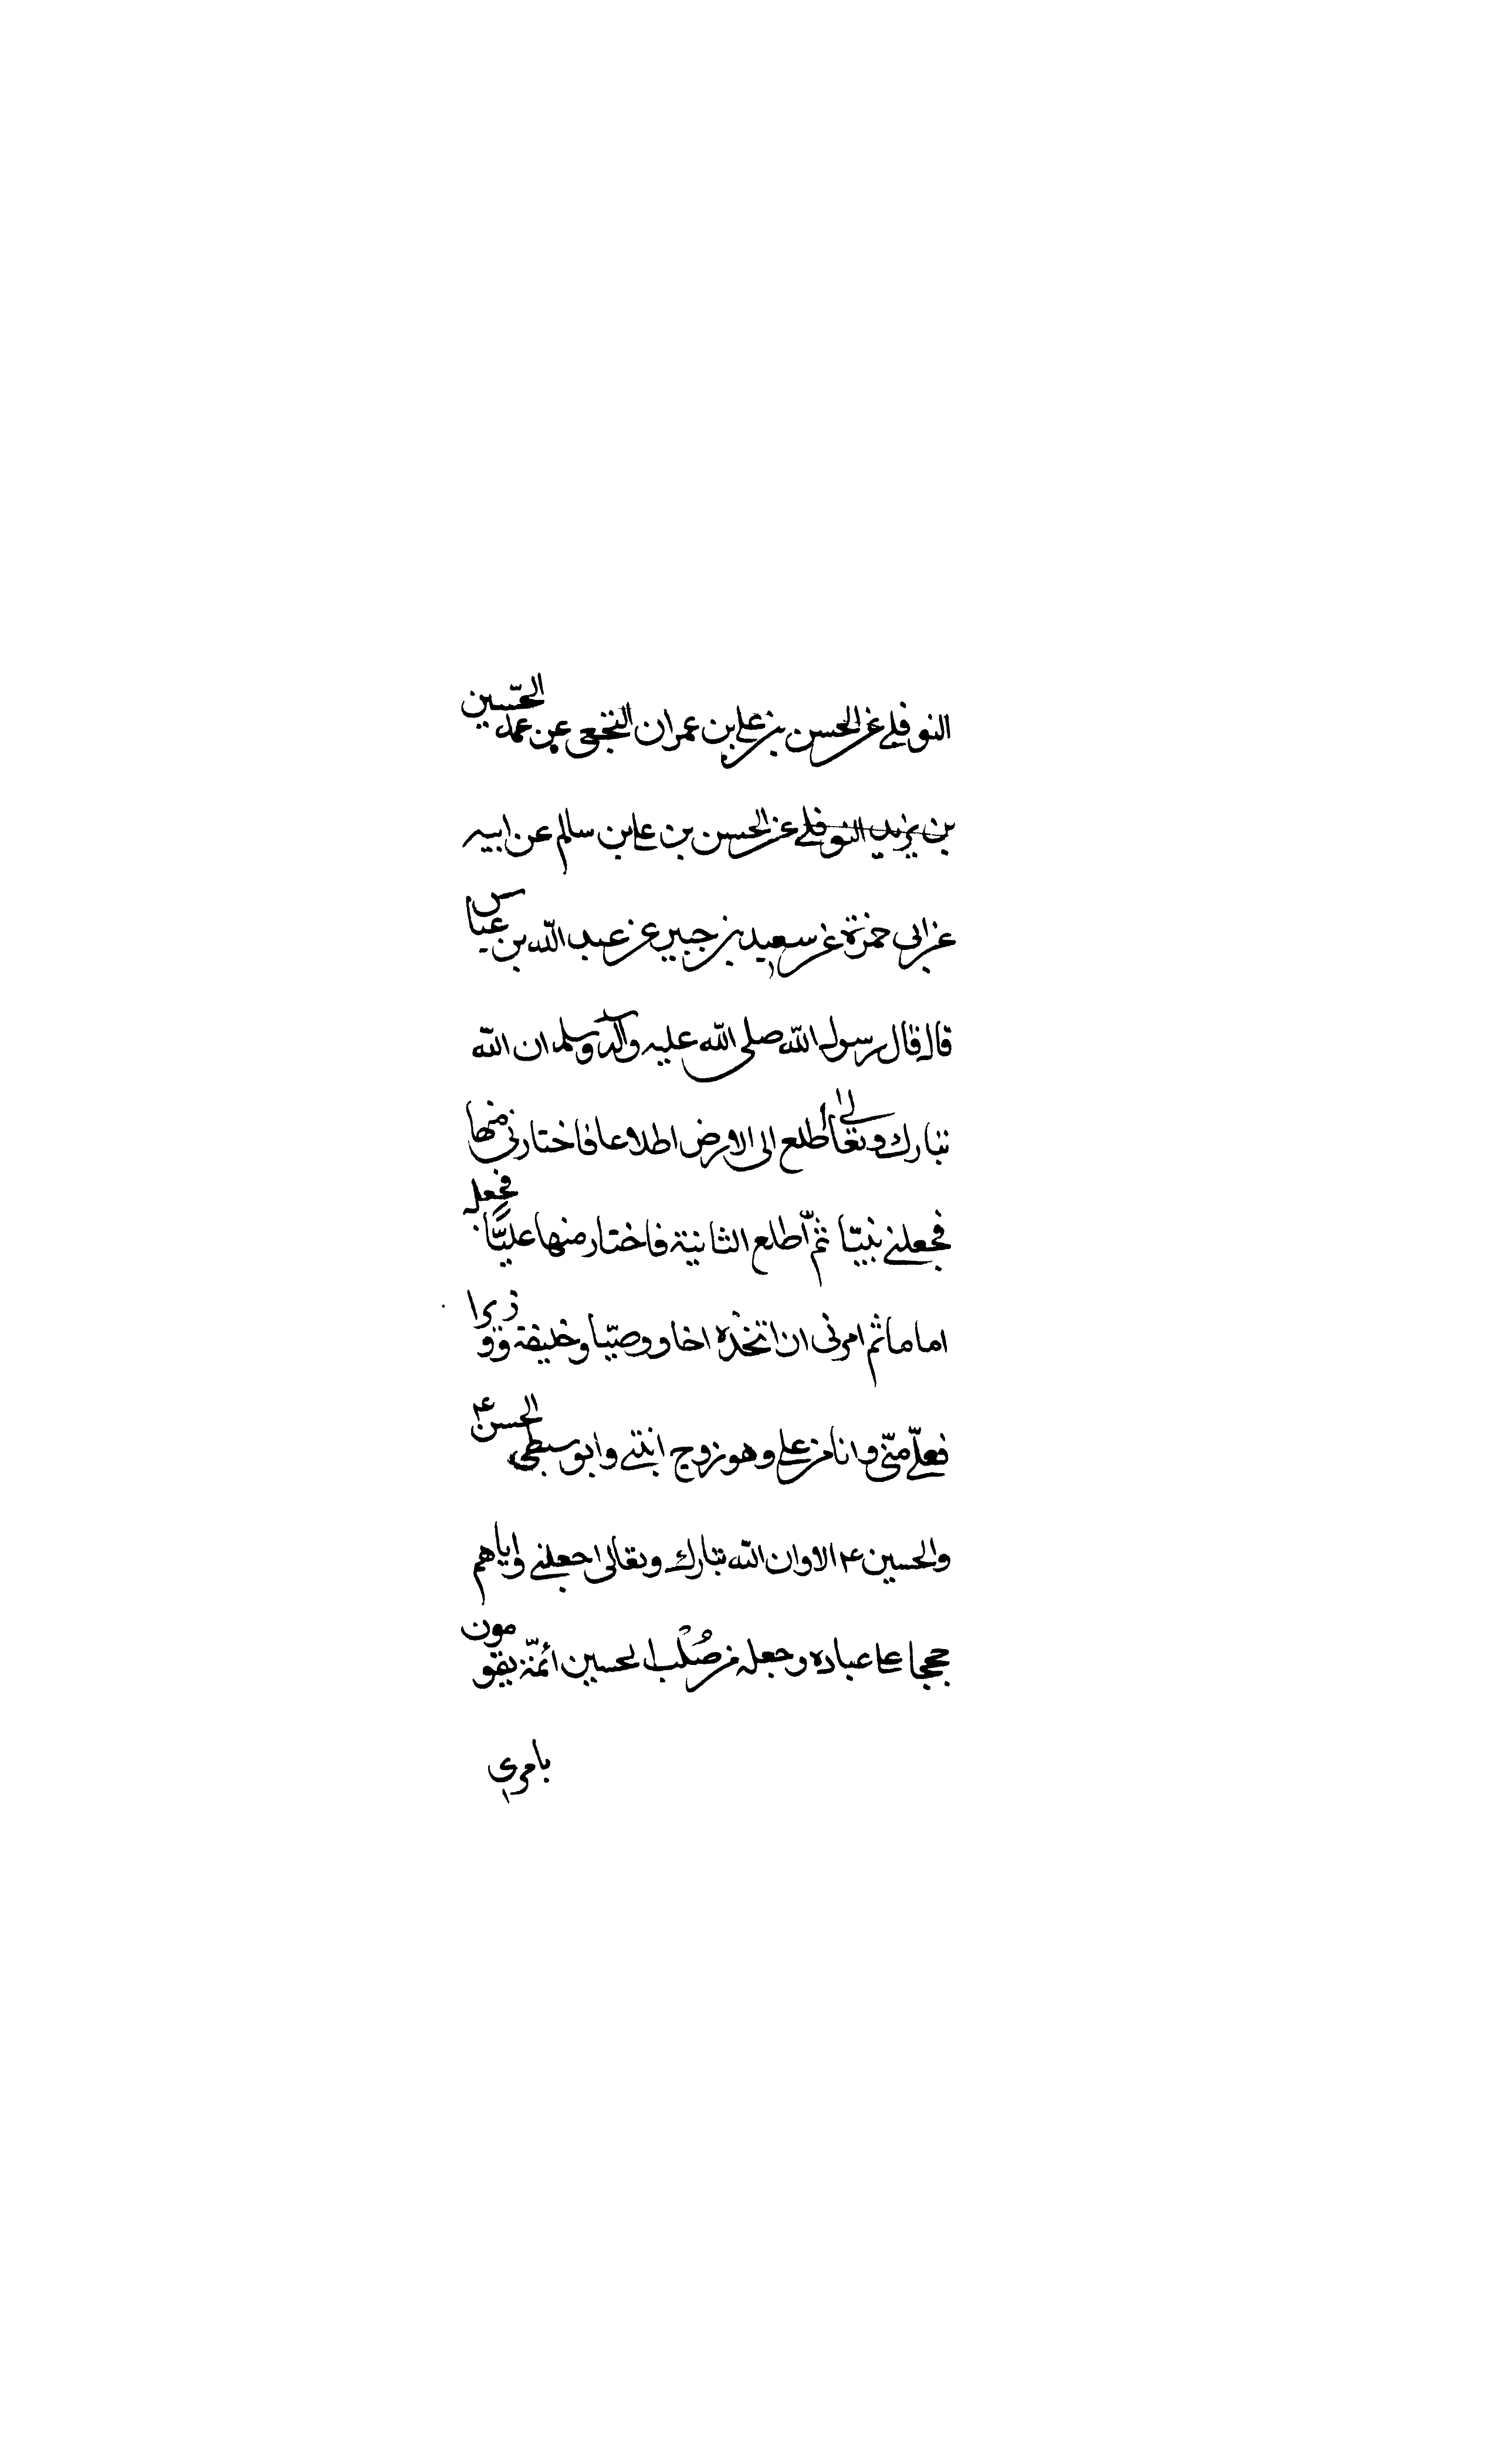 النوفلي عن الحسن بن علي بن عمران النخعي عن عمه الحسين
بن يزيد النوفلي عن الحسن بن علي بن سالم عن ابيه
عن ابى حمزة عن سعيد بن جبير عن عبد الله بن عباس
قال قال رسول الله صلى الله عليه وآله وسلم ان الله
تبارك وتعالى اطلع الى الارض اطلاعا فاختارنى منها
فجعلنى نبيّا ثم اطلع الثانية فاختار منها عليّاً فجعله
اماما ثم امرنى ان اتخذه اخا ووصيّا وخليفة ووزيرا
فعليّ منّي وانا من علي وهو زوج ابنتي وابو سبطي الحسن ع
والحسين ع الا وان الله تبارك وتعالى اجعلنى واياهم
حججا على عباده وجعل من صُلْب الحسين ائمّة يقومون
بامري